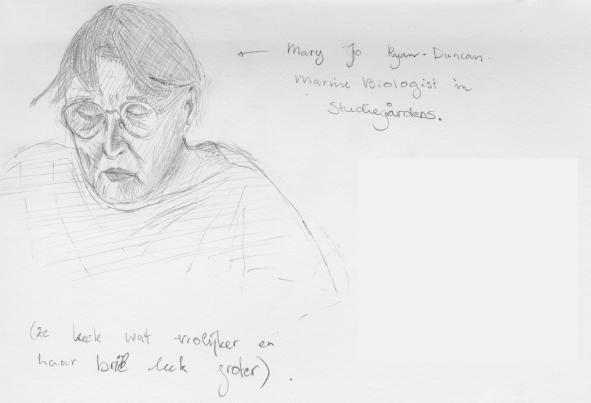 ← Mary Jo Ryan-Duncan.
Marine Biologist in
Studiegårdens.
(ze keek wat vrolijker en
haar bril leek groter).